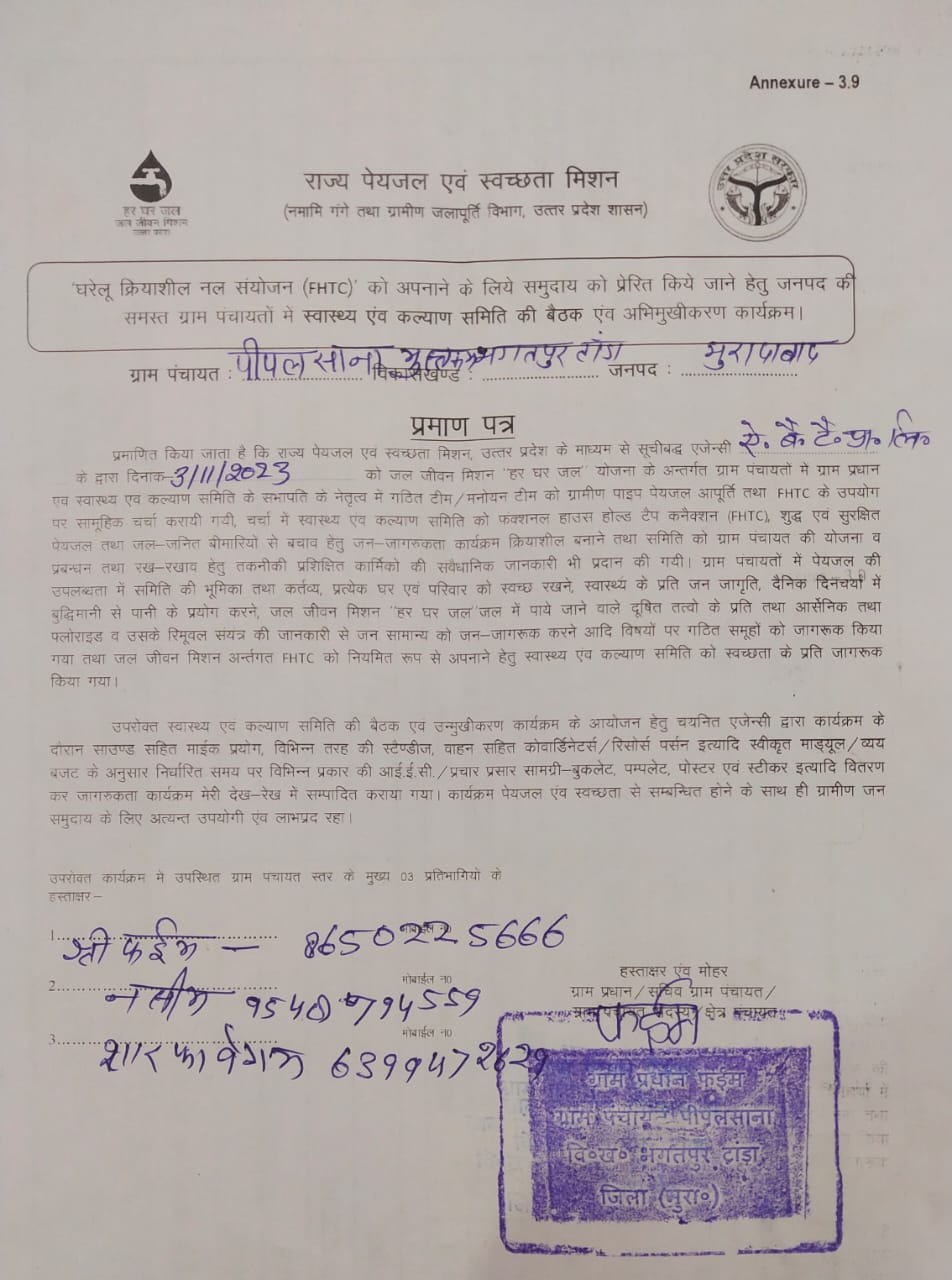 Annexure – 3.9
हर घर जल
जल जीवन मिशन
उत्तर प्रदेश सरकार
राज्य पेयजल एवं स्वच्छता मिशन
(नमामि गंगे तथा ग्रामीण जलापूर्ति विभाग, उत्तर प्रदेश शासन)
'घरेलू क्रियाशील नल संयोजन (FHTC)' को अपनाने के लिये समुदाय को प्रेरित किये जाने हेतु जनपद की
समस्त ग्राम पंचायतों में स्वास्थ्य एंव कल्याण समिति की बैठक एंव अभिमुखीकरण कार्यक्रम।
ग्राम पंचायत : पीपलसाना विकासखण्ड : भगतपुर टांडा जनपद : मुरादाबाद
प्रमाण पत्र
प्रमाणित किया जाता है कि राज्य पेयजल एवं स्वच्छता मिशन, उत्तर प्रदेश के माध्यम से सूचीबद्ध एजेन्सी ऐ. कै. टै. प्रा. लि.
के द्वारा दिनाक 3/11/2023 को जल जीवन मिशन "हर घर जल" योजना के अन्तर्गत ग्राम पंचायतों में ग्राम प्रधान
एंव स्वास्थ्य एंव कल्याण समिति के सभापति के नेतृत्व में गठित टीम/मनोयन टीम को ग्रामीण पाइप पेयजल आपूर्ति तथा FHTC के उपयोग
पर सामूहिक चर्चा करायी गयी, चर्चा में स्वास्थ्य एंव कल्याण समिति को फंक्शनल हाउस होल्ड टैप कनैक्शन (FHTC), शुद्ध एवं सुरक्षित
पेयजल तथा जल-जनित बीमारियों से बचाव हेतु जन-जागरुकता कार्यक्रम क्रियाशील बनाने तथा समिति को ग्राम पंचायत की योजना व
प्रबन्धन तथा रख-रखाव हेतु तकनीकी प्रशिक्षित कार्मिको की संवैधानिक जानकारी भी प्रदान की गयी। ग्राम पंचायतों में पेयजल की
उपलब्धता में समिति की भूमिका तथा कर्तव्य, प्रत्येक घर एवं परिवार को स्वच्छ रखने, स्वास्थ्य के प्रति जन जागृति, दैनिक दिनचर्या में
बुद्धिमानी से पानी के प्रयोग करने, जल जीवन मिशन "हर घर जल"जल में पाये जाने वाले दूषित तत्वो के प्रति तथा आर्सेनिक तथा
फ्लोराइड व उसके रिमूवल संयत्र की जानकारी से जन सामान्य को जन–जागरूक करने आदि विषयों पर गठित समूहों को जागरूक किया
गया तथा जल जीवन मिशन अर्न्तगत FHTC को नियमित रूप से अपनाने हेतु स्वास्थ्य एंव कल्याण समिति को स्वच्छता के प्रति जागरूक
किया गया।
उपरोक्त स्वास्थ्य एवं कल्याण समिति की बैठक एवं उन्मुखीकरण कार्यक्रम के आयोजन हेतु चयनित एजेन्सी द्वारा कार्यक्रम के
दौरान साउण्ड सहित माईक प्रयोग, विभिन्न तरह की स्टैण्डीज, वाहन सहित कोवार्डिनेटर्स/रिसोर्स पर्सन इत्यादि स्वीकृत माड्यूल/व्यय
बजट के अनुसार निर्धारित समय पर विभिन्न प्रकार की आई.ई.सी./प्रचार प्रसार सामग्री-बुकलेट, पम्पलेट, पोस्टर एवं स्टीकर इत्यादि वितरण
कर जागरुकता कार्यक्रम मेरी देख-रेख में सम्पादित कराया गया। कार्यक्रम पेयजल एंव स्वच्छता से सम्बन्धित होने के साथ ही ग्रामीण जन
समुदाय के लिए अत्यन्त उपयोगी एंव लाभप्रद रहा।
उपरोक्त कार्यक्रम मे उपस्थित ग्राम पंचायत स्तर के मुख्य 03 प्रतिभागियो के
हस्ताक्षर–
1. श्री फईम – मोबाईल न0 8650225666
2. नसीम मोबाईल न0
3. मोबाईल न0
हस्ताक्षर एंव मोहर
ग्राम प्रधान/सचिव ग्राम पंचायत/
सदस्य/क्षेत्र पंचायत
फईम
ग्राम प्रधान फ़ईम
ग्राम पंचायत पीपलसाना
वि०ख० भगतपुर टांडा
जिला (मुरा०)